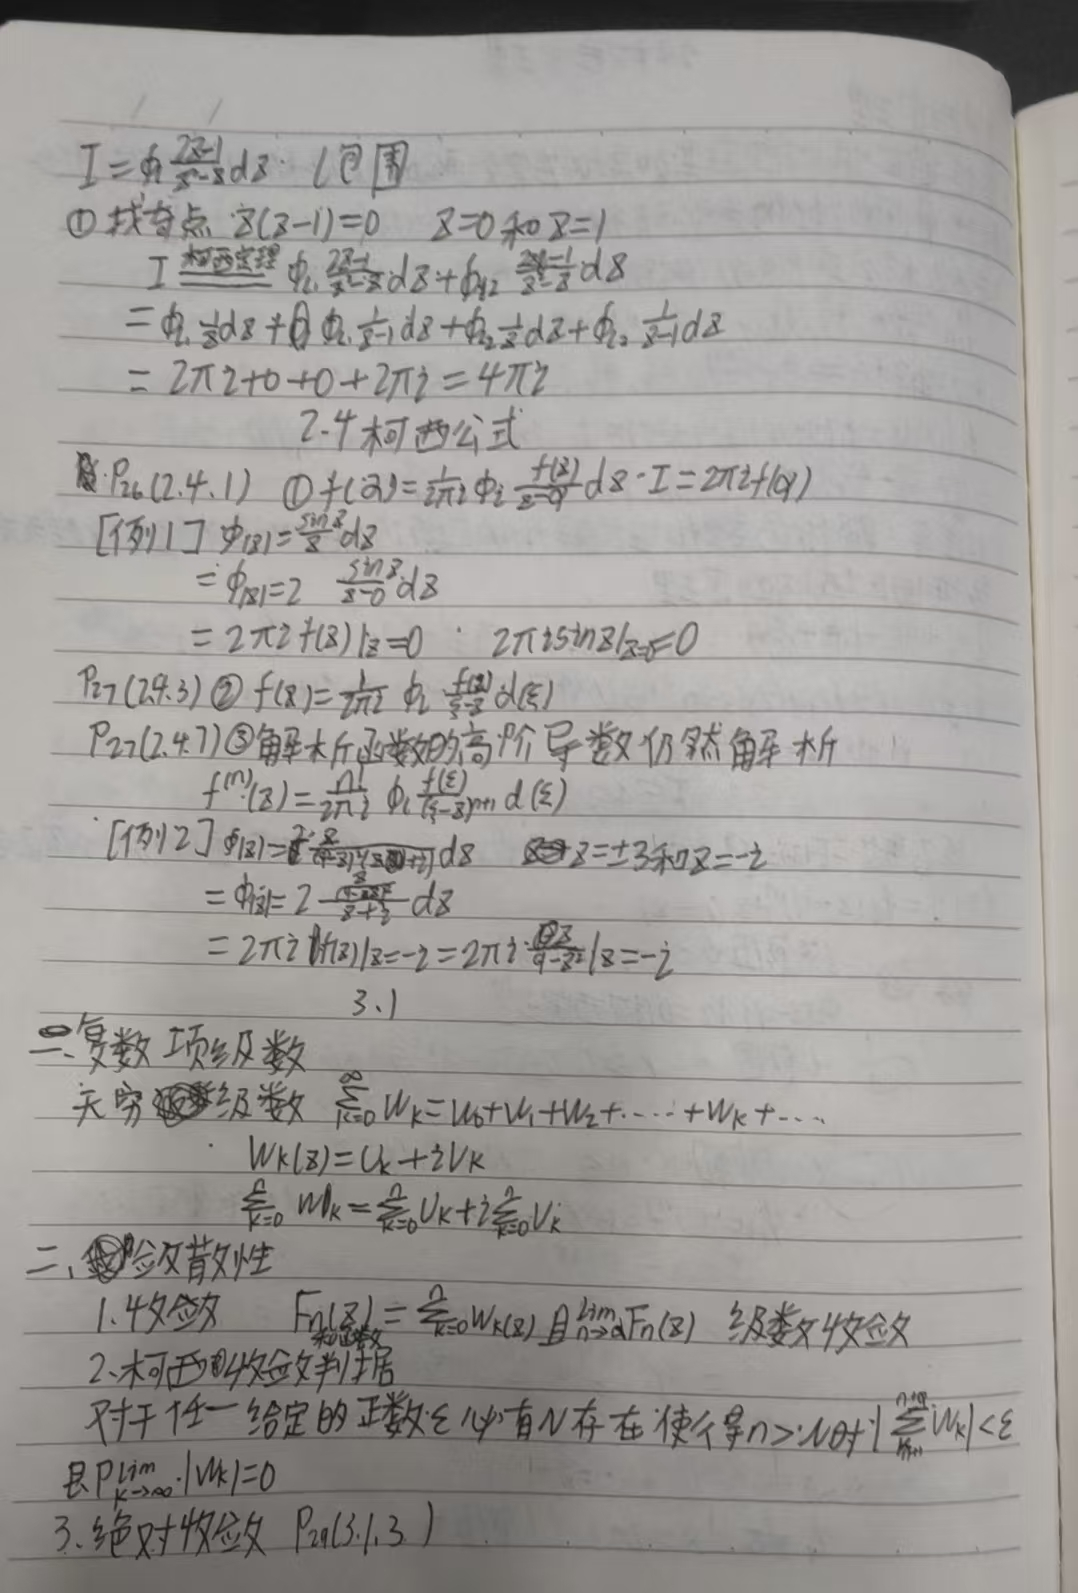 I=∮l (2z-1)/(z²-z) dz. l包围
①找奇点 z(z-1)=0 z=0和z=1
I 柯西定理 ∮l₁ (2z-1)/(z²-z) dz+∮l₂ (2z-1)/(z²-z) dz
=∮l₁ 1/z dz+∮l₁ 1/(z-1) dz+∮l₂ 1/z dz+∮l₂ 1/(z-1) dz
=2πi+0+0+2πi=4πi
2.4柯西公式
P26(2.4.1) ①f(α)=1/(2πi) ∮l f(z)/(z-α) dz·I=2πif(α)
[例1] ∮|z|= sinz/z dz
=∮|z|=2 sinz/(z-0) dz
=2πi f(z)|z=0 2πisinz|z=0=0
P27(2.4.3)②f(z)=1/(2πi) ∮l f(ξ)/(ξ-z) d(ξ)
P27(2.4.7)③解析函数的高阶导数仍然解析
f⁽ⁿ⁾(z)=n!/(2πi) ∮l f(ξ)/(ξ-z)ⁿ⁺¹ d(ξ)
[例2] ∮|z|=2 z/((9-z²)(z+i)) dz z=±3和z=-i
=∮|z|=2 (z/(9-z²))/(z+i) dz
=2πi f(z)|z=-i=2πi· z/(9-z²)|z=-i
3.1
一、复数项级数
无穷级数 ∑k=0^∞ Wk=W0+W1+W2+·····+Wk+····
Wk(z)=Uk+iVk
∑k=0^n Wk=∑k=0^n Uk+i∑k=0^n Vk
二、敛散性
1.收敛 Fn(z)=∑k=0^n Wk(z)且lim n→∞ Fn(z) 级数收敛
和函数
2.柯西收敛判据
对于任一给定的正数ε必有N存在使得n>N时|∑k=n+1^n+p Wk|<ε
且 lim k→∞ |Wk|=0
3.绝对收敛 P29(3.1.3)